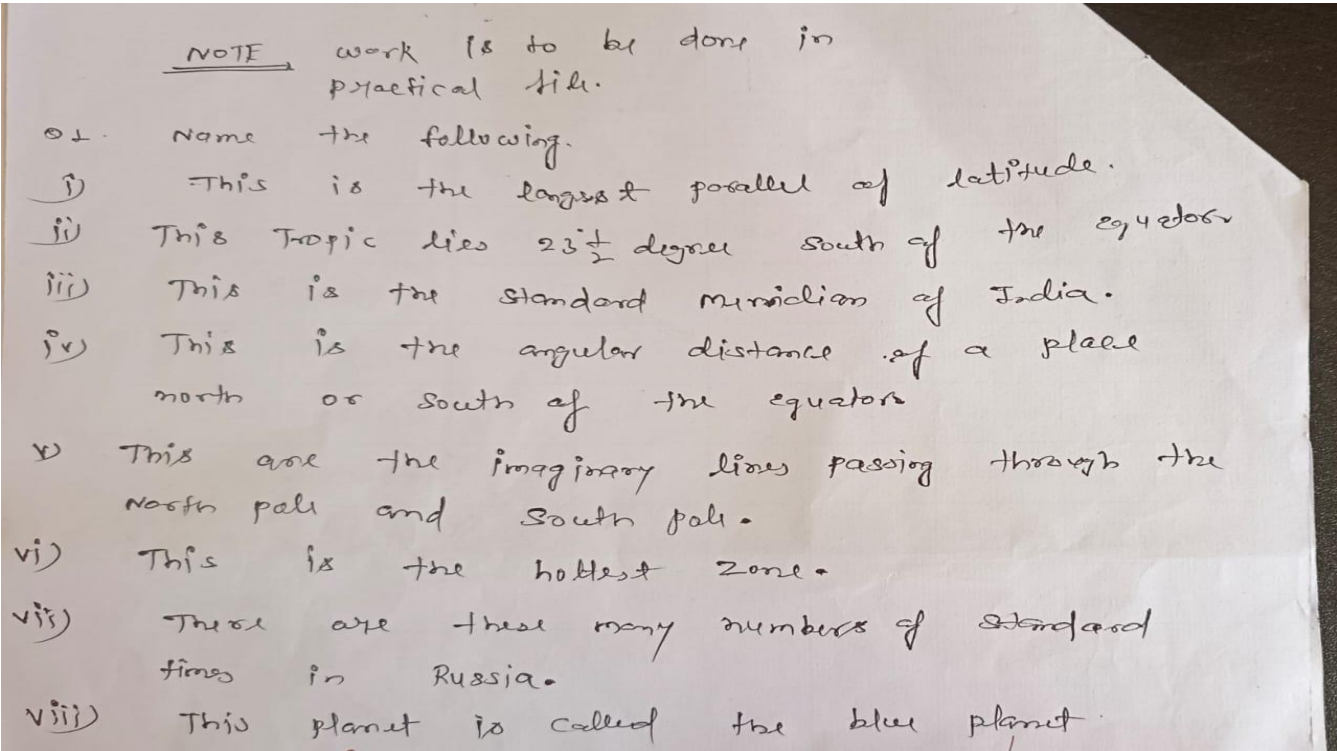 NOTE work is to be done in
practical file.
Q1. Name the following.
i) This is the longest parallel of latitude.
ii) This Tropic lies 23 1/2 degree south of the equator
iii) This is the standard meridian of India.
iv) This is the angular distance of a place
north or south of the equator
v) This are the imaginary lines passing through the
North pole and South pole.
vi) This is the hottest zone.
vii) There are these many numbers of standard
times in Russia.
viii) This planet is called the blue planet.